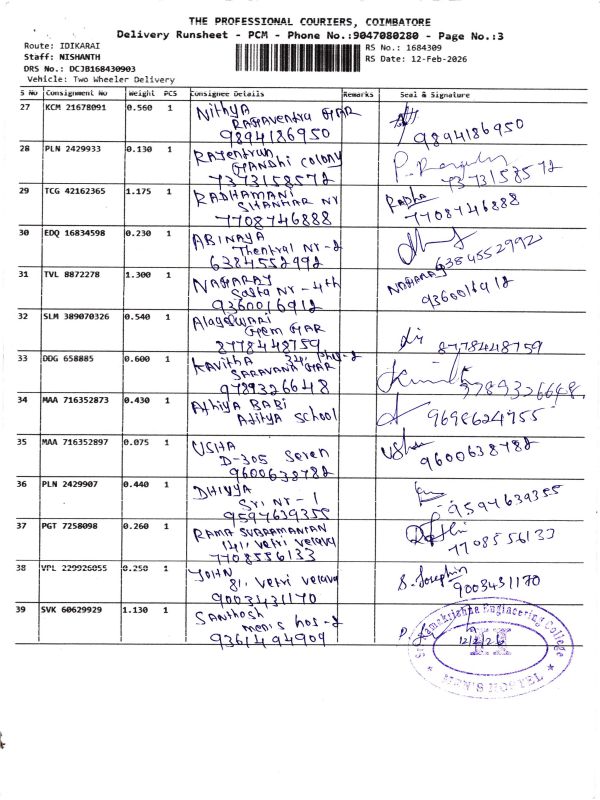 THE PROFESSIONAL COURIERS, COIMBATORE
Delivery Runsheet - PCM - Phone No.:9047080280 - Page No.:3
Route: IDIKARAI
RS No.: 1684309
Staff: NISHANTH
RS Date: 12-Feb-2026
DRS No.: DCJB168430903
Vehicle: Two Wheeler Delivery
S No Consignment No Weight PCS Consignee Details Remarks Seal & Signature
27 KCM 21678091 0.560 1 Nithya
Raghavendra GAR
9894186950 9894186950
28 PLN 2429933 0.130 1 Rajendran
Gandhi colony
7373158572 7373158572
29 TCG 42162365 1.175 1 RADHAMANI Radha
SHANKAR Nr
7708746888 7708746888
30 EDQ 16834598 0.230 1 ABINAYA
Thentral Nr-2
6384552992 6384552992
31 TVL 8872278 1.300 1 NAGARAJ NAGARAJ
Nr-4th
9360016912 9360016912
32 SLM 389070326 0.540 1 Alageswari
Gem GAR
8778448759 8778448759
33 DDG 658885 0.600 1 Kavitha
SARAVANA GAR
9789326648 9789326648
34 MAA 716352873 0.430 1 Athiya BABI
Aditya School 9698624755
35 MAA 716352897 0.075 1 USHA Usha
D-305 Seren
9600638782 9600638782
36 PLN 2429907 0.440 1 DHIVYA
Sri Nr-1
9597639355 9597639355
37 PGT 7258098 0.260 1 RAMA SUBRAMANIAN
141, Vetri Velava
7708556133 7708556133
38 VPL 229926055 0.250 1 JOHN S. Josephin
81, Vetri Velava
9003431170 9003431170
39 SVK 60629929 1.130 1 Santhosh
men's hos-2
9361494909
Sri Ramakrishna Engineering College
12/2/26
MEN'S HOSTEL